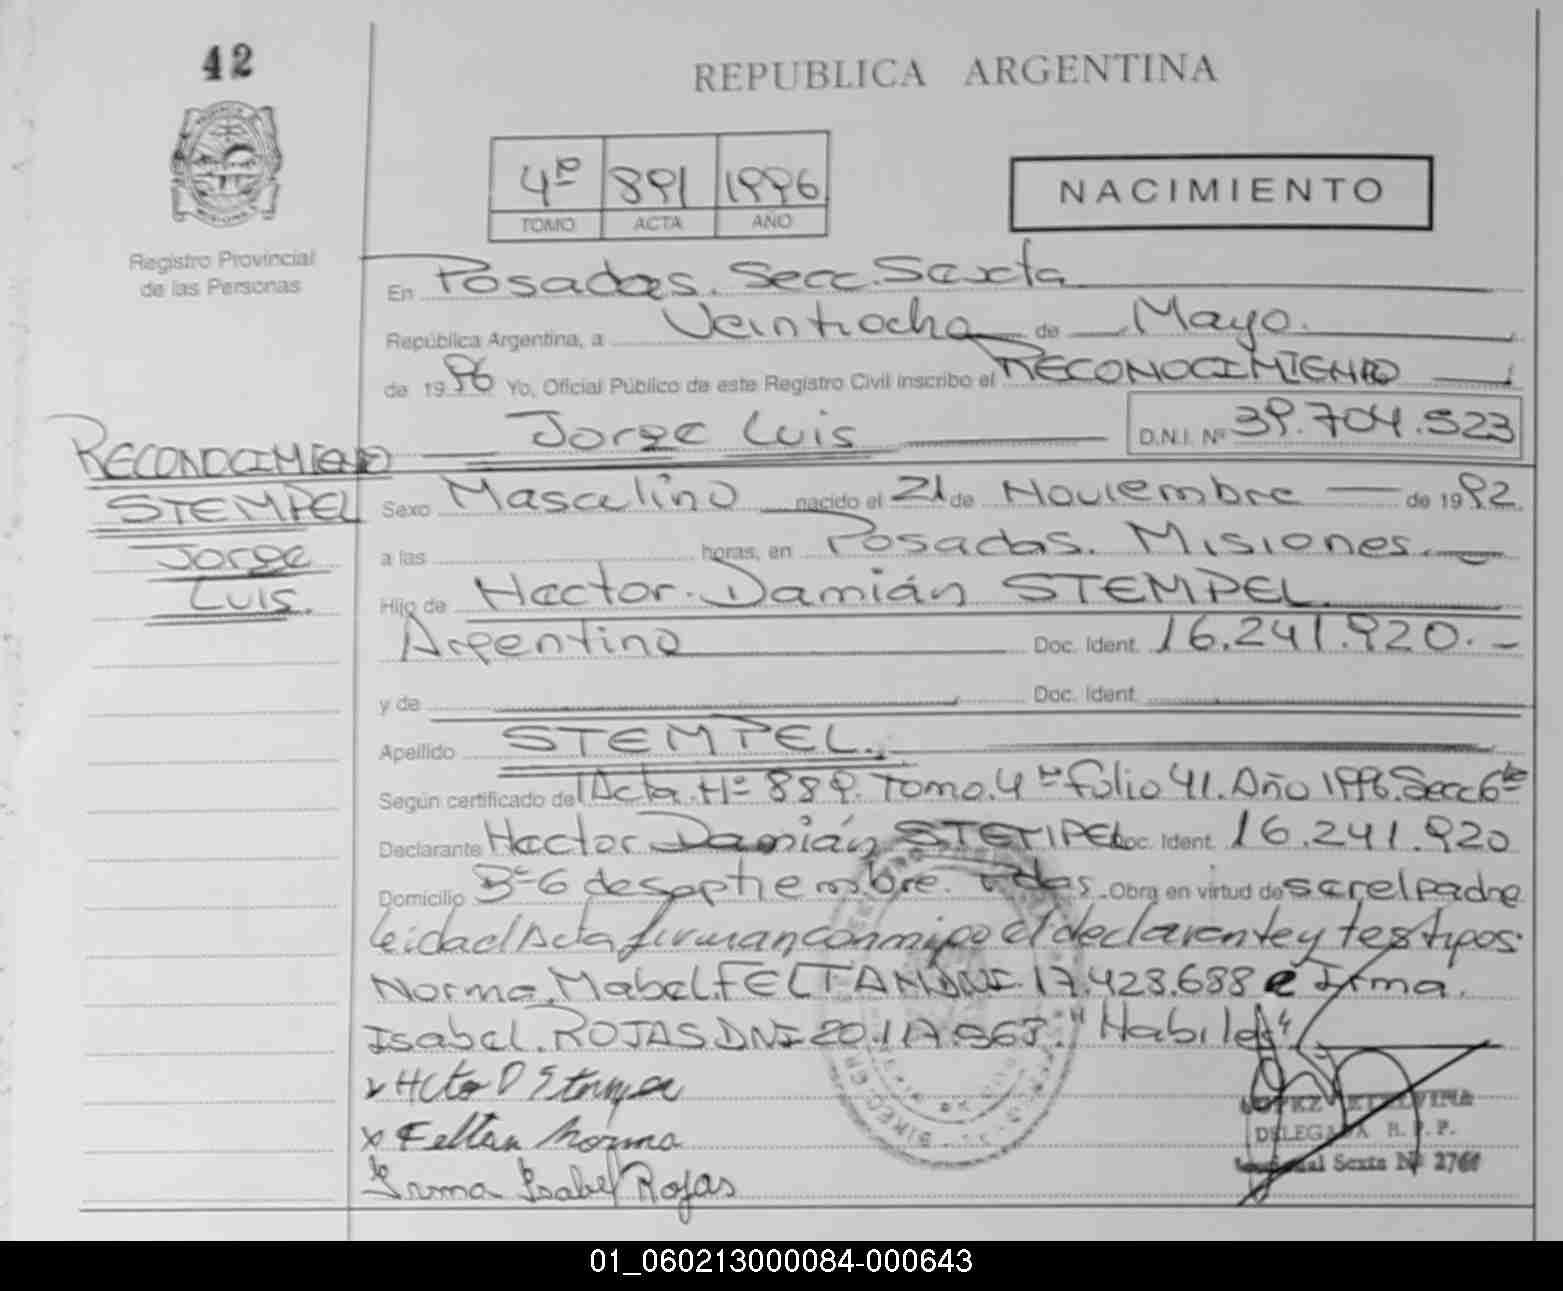 42
REPUBLICA ARGENTINA
4º 891 1996
TOMO ACTA AÑO
NACIMIENTO
Registro Provincial
de las Personas
En Posadas. Secc. Sexta
República Argentina, a Veintiocho de Mayo.
de 1996 Yo, Oficial Público de este Registro Civil inscribo el RECONOCIMIENTO
Jorge Luis D.N.I. Nº 39.704.523
RECONOCIMIENTO
STEMPEL
Jorge
Luis.
Sexo Masculino nacido el 21 de Noviembre de 1992
a las horas, en Posadas. Misiones.
Hijo de Hector. Damián STEMPEL.
Argentino Doc. Ident. 16.241.920.-
y de Doc. Ident.
Apellido STEMPEL.
Según certificado de Acta. Nº 889. Tomo. 4º folio 41. Año 1996. Secc 6ta
Declarante Hector Damián STEMPEL Doc. Ident. 16.241.920
Domicilio Bº 6 de septiembre. Pdas. Obra en virtud de ser el padre
leida el Acta firman conmigo el declarante y testigos:
Norma. Mabel. FELTAN DNI. 17.428.688 e Irma.
Isabel. ROJAS DNI 20.117.563. "Habiles"
x Hcto D Stempel
x Feltan Norma
Irma Isabel Rojas
LOPEZ ETELVINA
DELEGADA R. P. P.
Sexta Nº 2766
01_060213000084-000643